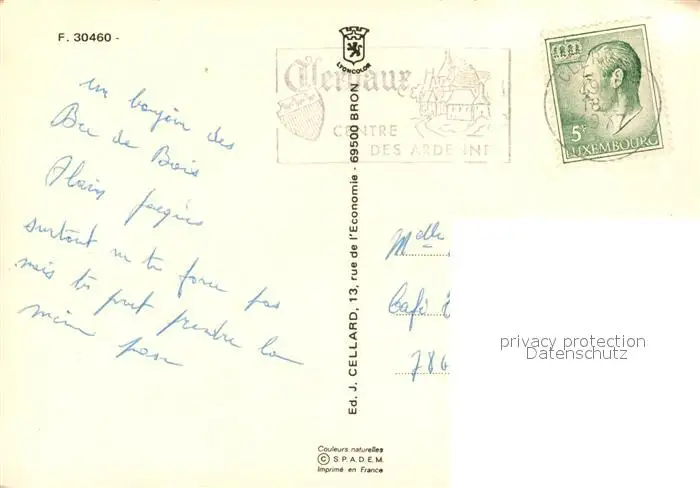 F. 30460 -
LYONCOLOR
Clervaux
CENTRE
DES ARDENNE
5F
LUXEMBOURG
un bonjour des
Bec de Bois
Alain Jacques
surtout ne te force pas
mais tu peut prendre la
même pose
Ed. J. CELLARD, 13, rue de l'Economie - 69500 BRON
Melle
Café
786
privacy protection
Datenschutz
Couleurs naturelles
© S.P.A.D.E.M.
Imprimé en France